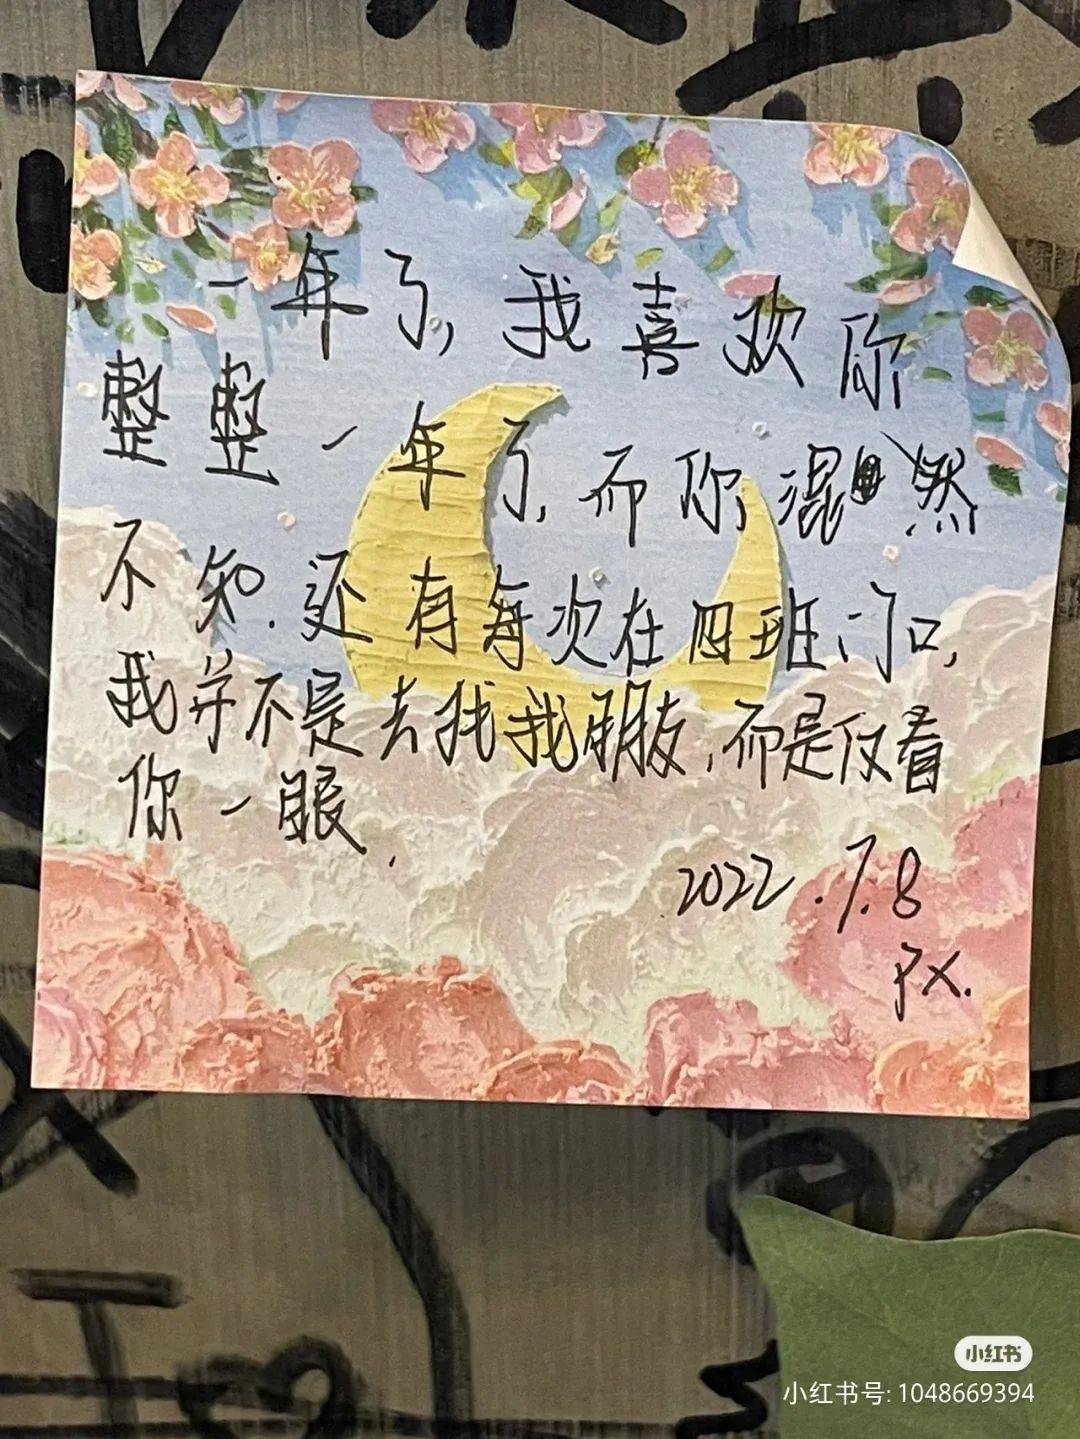 一年了,我喜欢你
整整一年了,而你混然
不知.还有每次在四班门口,
我并不是去找我朋友,而是仅看
你一眼.
2022.7.8
PX.
小红书
小红书号: 1048669394